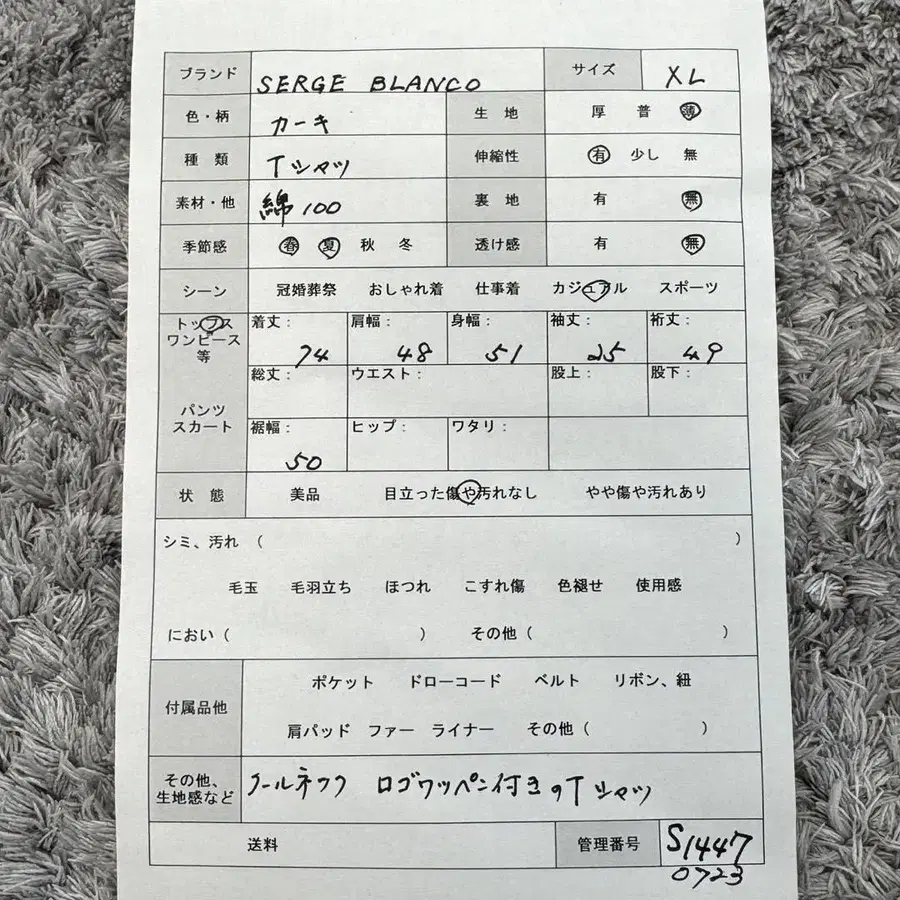 ブランド SERGE BLANCO サイズ XL
色・柄 カーキ 生地 厚 普 薄
種類 Tシャツ 伸縮性 有 少し 無
素材・他 綿100 裏地 有 無
季節感 春 夏 秋 冬 透け感 有 無
シーン 冠婚葬祭 おしゃれ着 仕事着 カジュアル スポーツ
トップス
ワンピース
等
着丈： 肩幅： 身幅： 袖丈： 裄丈：
74 48 51 25 49
総丈： ウエスト： 股上： 股下：
パンツ
スカート
裾幅： ヒップ： ワタリ：
50
状態 美品 目立った傷や汚れなし やや傷や汚れあり
シミ、汚れ （ ）
毛玉 毛羽立ち ほつれ こすれ傷 色褪せ 使用感
におい（ ） その他（ ）
付属品他
ポケット ドローコード ベルト リボン、紐
肩パッド ファー ライナー その他（ ）
その他、
生地感など
ノールネック ロゴワッペン付きのTシャツ
送料 管理番号 S1447
0723